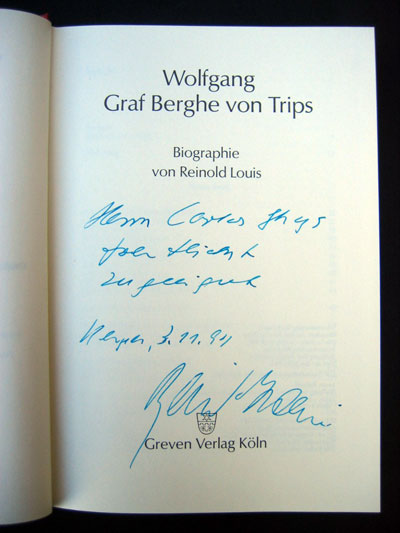 Wolfgang
Graf Berghe von Trips
Biographie
von Reinold Louis
Herrn Carlos Ghys
freundlichst
zugeeignet
Kerpen, 3.11.91
Greven Verlag Köln